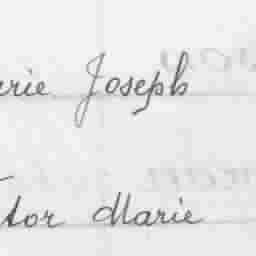 erie Joseph
tor Marie